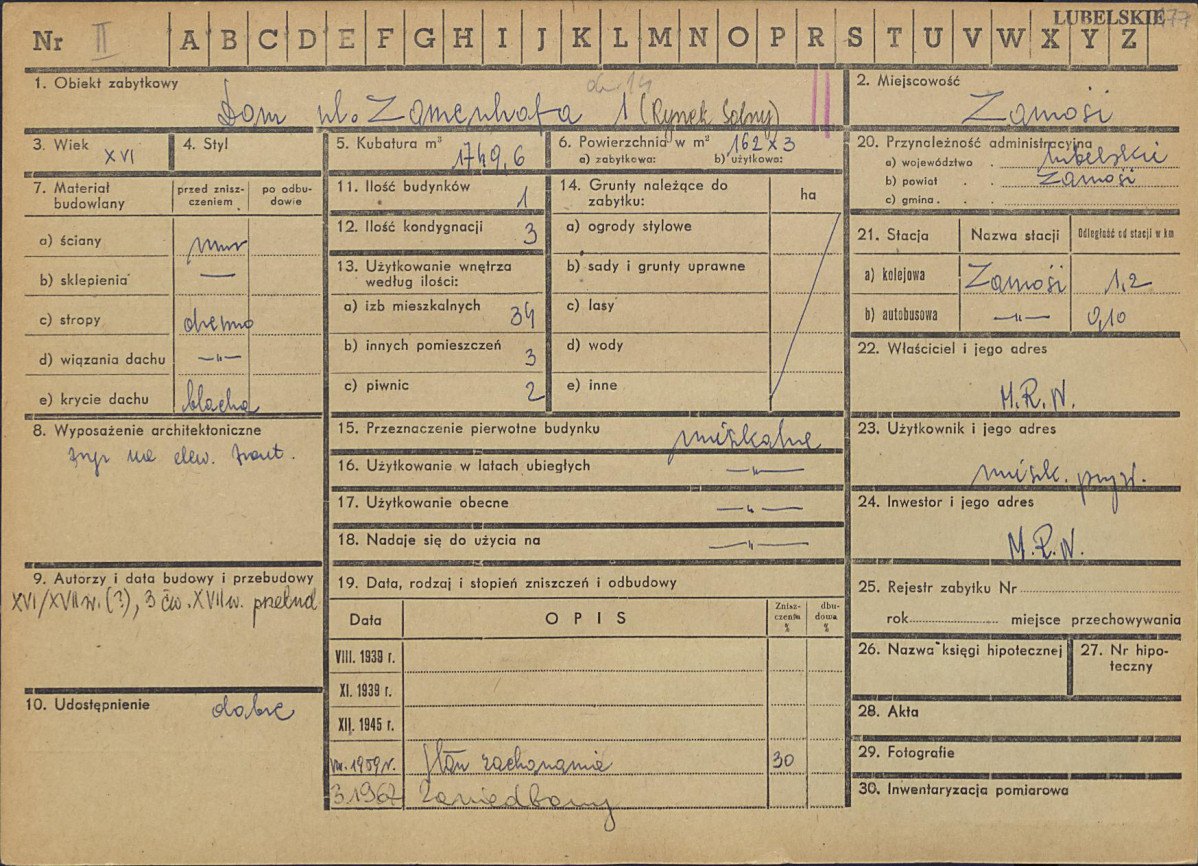 LUBELSKIE 177
Nr II A B C D E F G H I J K L M N O P R S T U V W X Y Z
1. Obiekt zabytkowy
Dom ul. Zamenhofa 1 (Rynek Solny)
2. Miejscowość
Zamość
3. Wiek XVI
4. Styl
5. Kubatura m³ 1749,6
6. Powierzchnia w m² 162 x 3
a) zabytkowa: b) użytkowa:
7. Materiał budowlany
przed zniszczeniem
po odbudowie
a) ściany mur
b) sklepienia —
c) stropy drewno
d) wiązania dachu —"—
e) krycie dachu blacha
8. Wyposażenie architektoniczne
na elew. front.
9. Autorzy i data budowy i przebudowy
XVI/XVII w. (?), 3 ćw. XVII w. przebud
10. Udostępnienie dobre
11. Ilość budynków 1
12. Ilość kondygnacji 3
13. Użytkowanie wnętrza
według ilości:
a) izb mieszkalnych 34
b) innych pomieszczeń 3
c) piwnic 2
14. Grunty należące do
zabytku:
ha
a) ogrody stylowe
b) sady i grunty uprawne
c) lasy
d) wody
e) inne
15. Przeznaczenie pierwotne budynku mieszkalne
16. Użytkowanie w latach ubiegłych —"—
17. Użytkowanie obecne —"—
18. Nadaje się do użycia na —"—
19. Data, rodzaj i stopień zniszczeń i odbudowy
Data OPIS Zniszczenia % dbudowa %
VIII. 1939 r.
XI. 1939 r.
XII. 1945 r.
1959 r. Stan zachowania 30
3.1967 Zaniedbany
20. Przynależność administracyjna
a) województwo . lubelskie
b) powiat . . Zamość
c) gmina . .
21. Stacja Nazwa stacji Odległość od stacji w km
a) kolejowa Zamość 1,2
b) autobusowa —"— 0,10
22. Właściciel i jego adres
M.R.N.
23. Użytkownik i jego adres
mieszk. pryw.
24. Inwestor i jego adres
M.R.N.
25. Rejestr zabytku Nr
rok miejsce przechowywania
26. Nazwa księgi hipotecznej
27. Nr hipoteczny
28. Akta
29. Fotografie
30. Inwentaryzacja pomiarowa